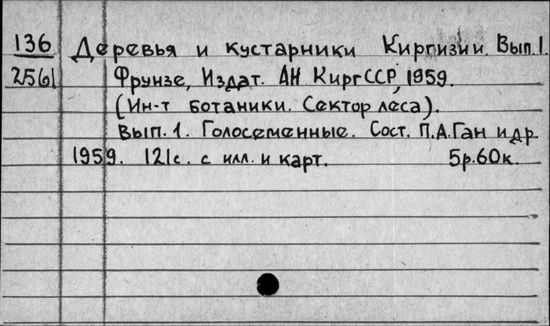 136 Деревья и кустарники Киргизии. Вып.1.
2561 Фрунзе, Издат. АН КиргССР, 1959.
(Ин-т ботаники. Сектор леса).
Вып. 1. Голосеменные. Сост. П.А.Ган и др.
1959. 121с. с илл. и карт. 5р.60к.